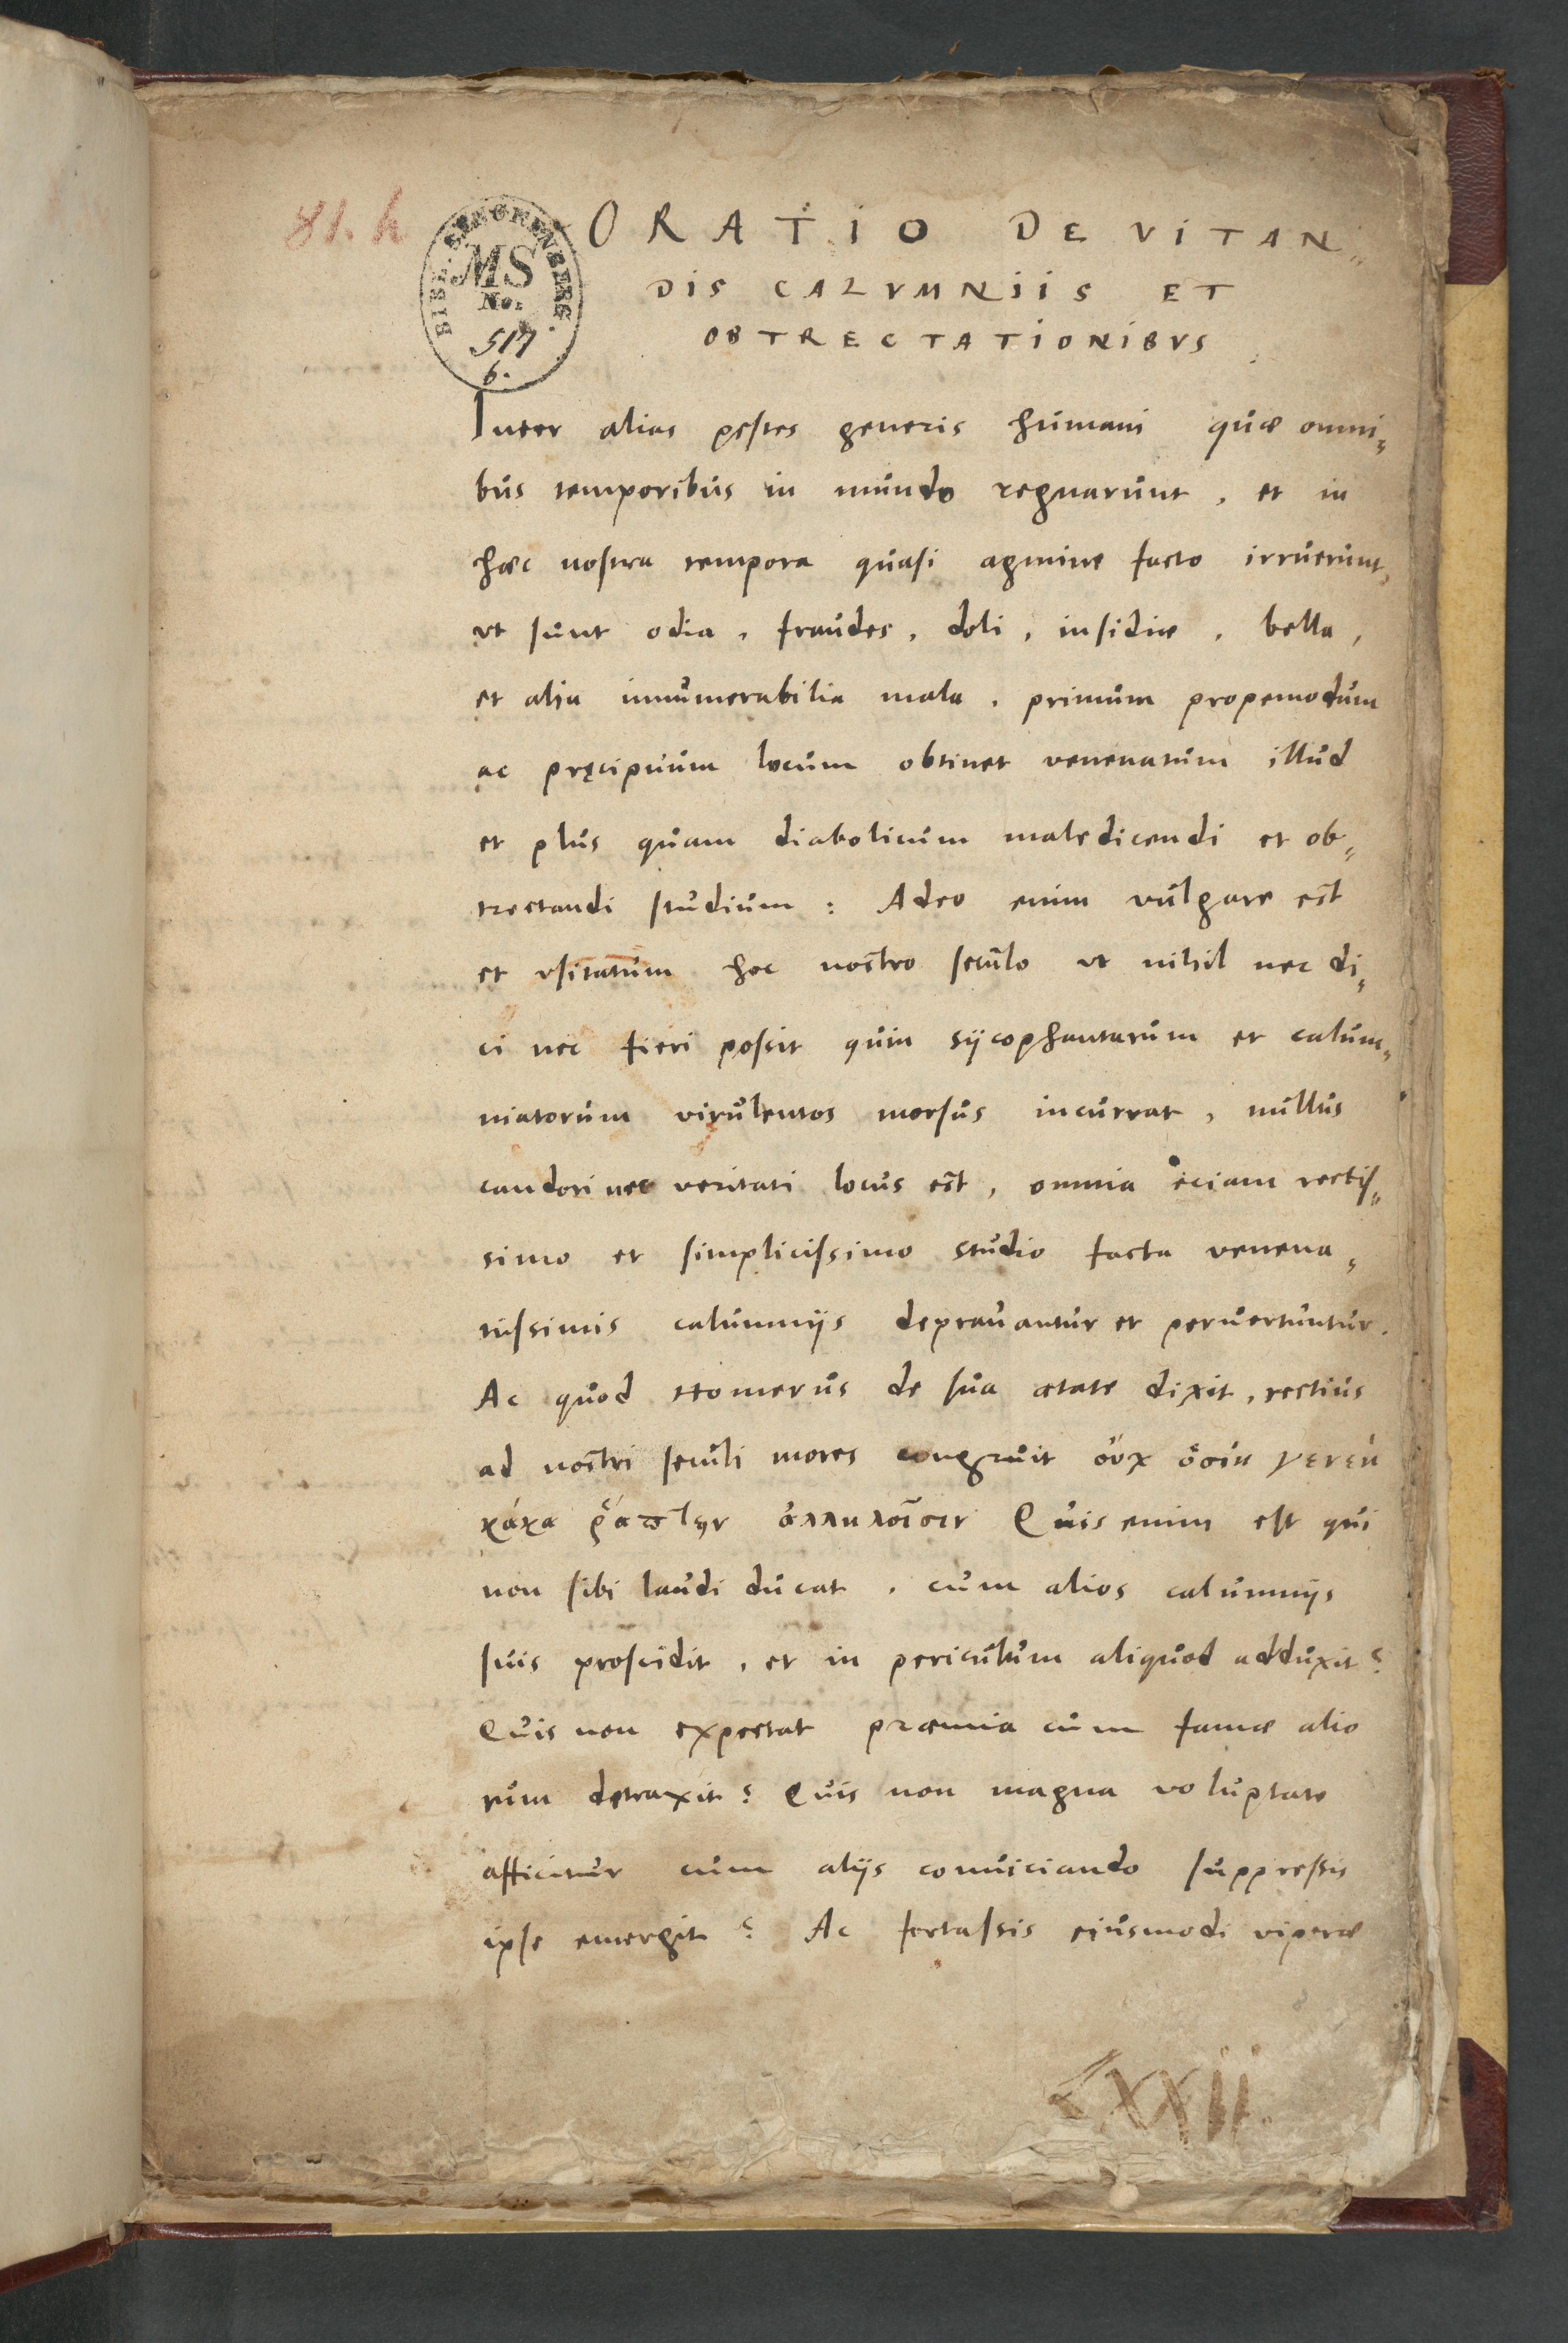 81. h
BIBL. SENCKENBERG.
MS
No.
517
6.
ORATIO DE VITAN„
DIS CALVMNIIS ET
OBTRECTATIONIBVS
Inter alias pestes generis humani quæ omni„
bus temporibus in mundo regnarunt, et in
hæc nostra tempora quasi agmine facto irruerunt,
vt sunt odia, fraudes, doli, insidiæ, bella,
et alia innumerabilia mala, primum propemodum
ac pręcipuum locum obtinet venenatum illud
et plus quam diabolicum maledicendi et ob„
trectandi studium: Adeo enim vulgare est
et vsitatum hoc nostro seculo vt nihil nec di„
ci nec fieri possit quin sÿcophantarum et calum„
niatorum virulentos morsus incurrat, nullus
candori nec veritati locus est, omnia eciam rectis„
simo et simplicissimo studio facta venena„
tissimis calumnijs deprauantur et peruertuntur.
Ac quod Homerus de sua ætate dixit, rectius
ad nostri seculi mores congruit οὐχ
κάκα Quis enim est qui
non sibi laudi ducat, cum alios calumnijs
suis proscidit, et in periculum aliquod adduxit?
Quis non expectat præmia cum famæ alio
rum detraxit? Quis non magna voluptate
afficitur cum alijs conuiciando suppressis
ipse emergit? Ac fortassis eiusmodi viperæ
LXXII.